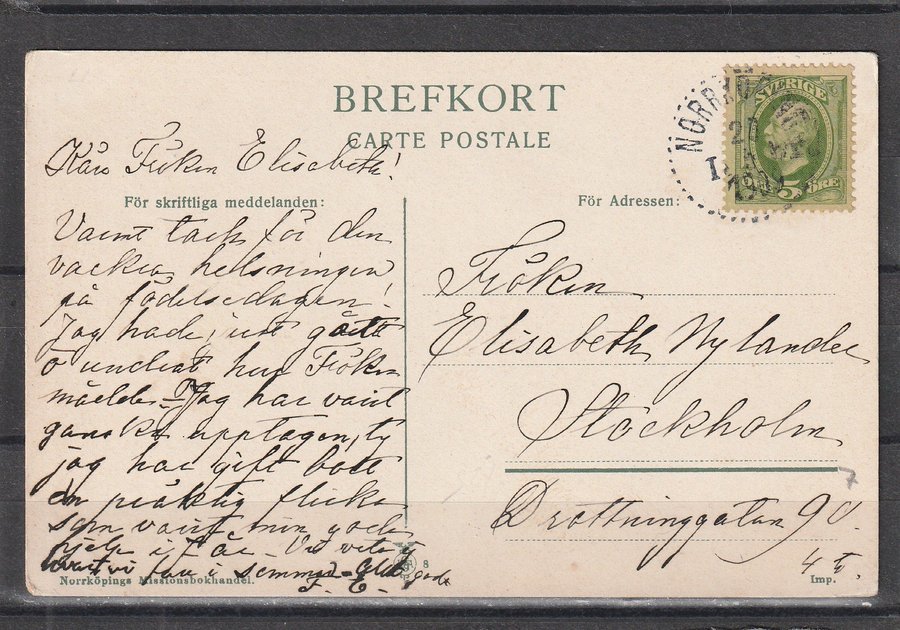 BREFKORT
CARTE POSTALE
Kära Fröken Elisabeth!
För skriftliga meddelanden:
Varmt tack för den
vackra helsningen
på födelsedagen!
Jag hade just gått
o undrat hur Fröken
mådde. Jag har varit
ganska upptagen, ty
jag har gift bort
en präktig flicka
som varit min goda
hjelp i 7 år. Vi veta ej
vart vi fara i sommar. God
F. E.
Norrköpings Missionsbokhandel.
8
NORRKÖP
21
1
SVERIGE
5 ÖRE
För Adressen:
Fröken
Elisabeth Nylander
Stockholm
Drottninggatan 90.
4 tr.
7
Imp.